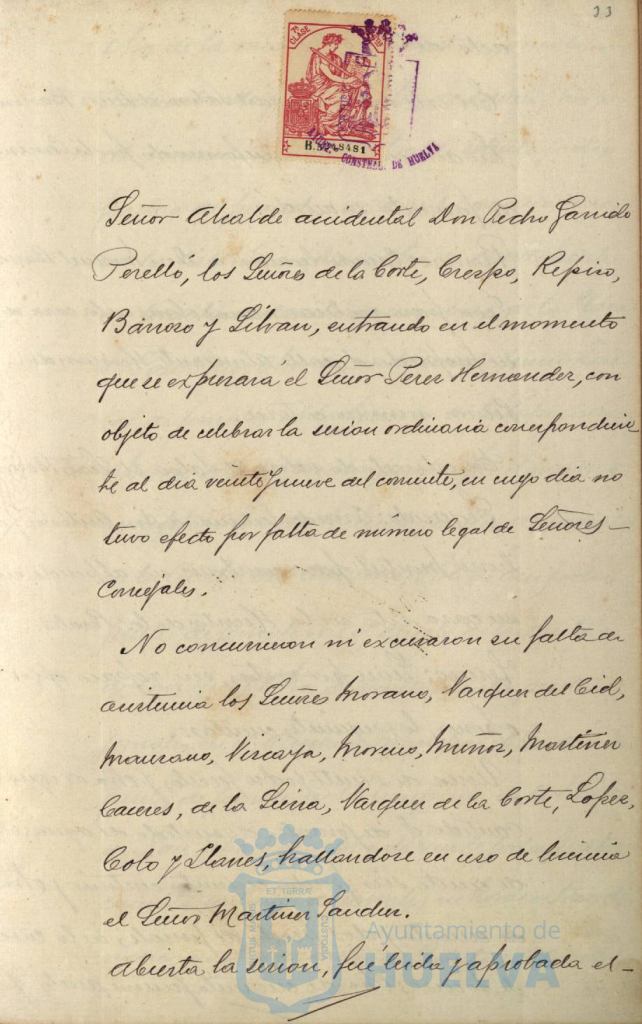 33
7ª CLASE
B.5248481
AYUNTº CONSTNAL. DE HUELVA
Señor Alcalde accidental Don Pedro Garrido
Perelló, los Señores de la Corte, Crespo, Repiso,
Barroso y Silvan, entrando en el momento
que se expresará el Señor Perez Hernandez, con
objeto de celebrar la sesion ordinaria correspondien
te al dia veintinueve del corriente, en cuyo dia no
tuvo efecto por falta de número legal de Señores
Concejales.
No concurrieron ni excusaron su falta de
asistencia los Señores Morano, Vazquez del Cid,
Manzano, Vizcaya, Moreno, Muñoz, Martinez
Caceres, de la Sierra, Vazquez de la Corte, Lopez,
Coto y Llanes, hallandose en uso de licencia
el Señor Martinez Sanchez.
Abierta la sesion, fué leida y aprobada el
ET TERRÆ
CUSTODIA
Ayuntamiento de
HUELVA